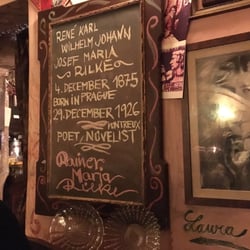 RENÉ KARL
WILHELM JOHANN
JOSEF MARIA
RILKE
4. DECEMBER 1875
BORN IN PRAGUE
29. DECEMBER 1926
MONTREUX
POET / NOVELIST
Rainer
Maria
Rilke
Laura